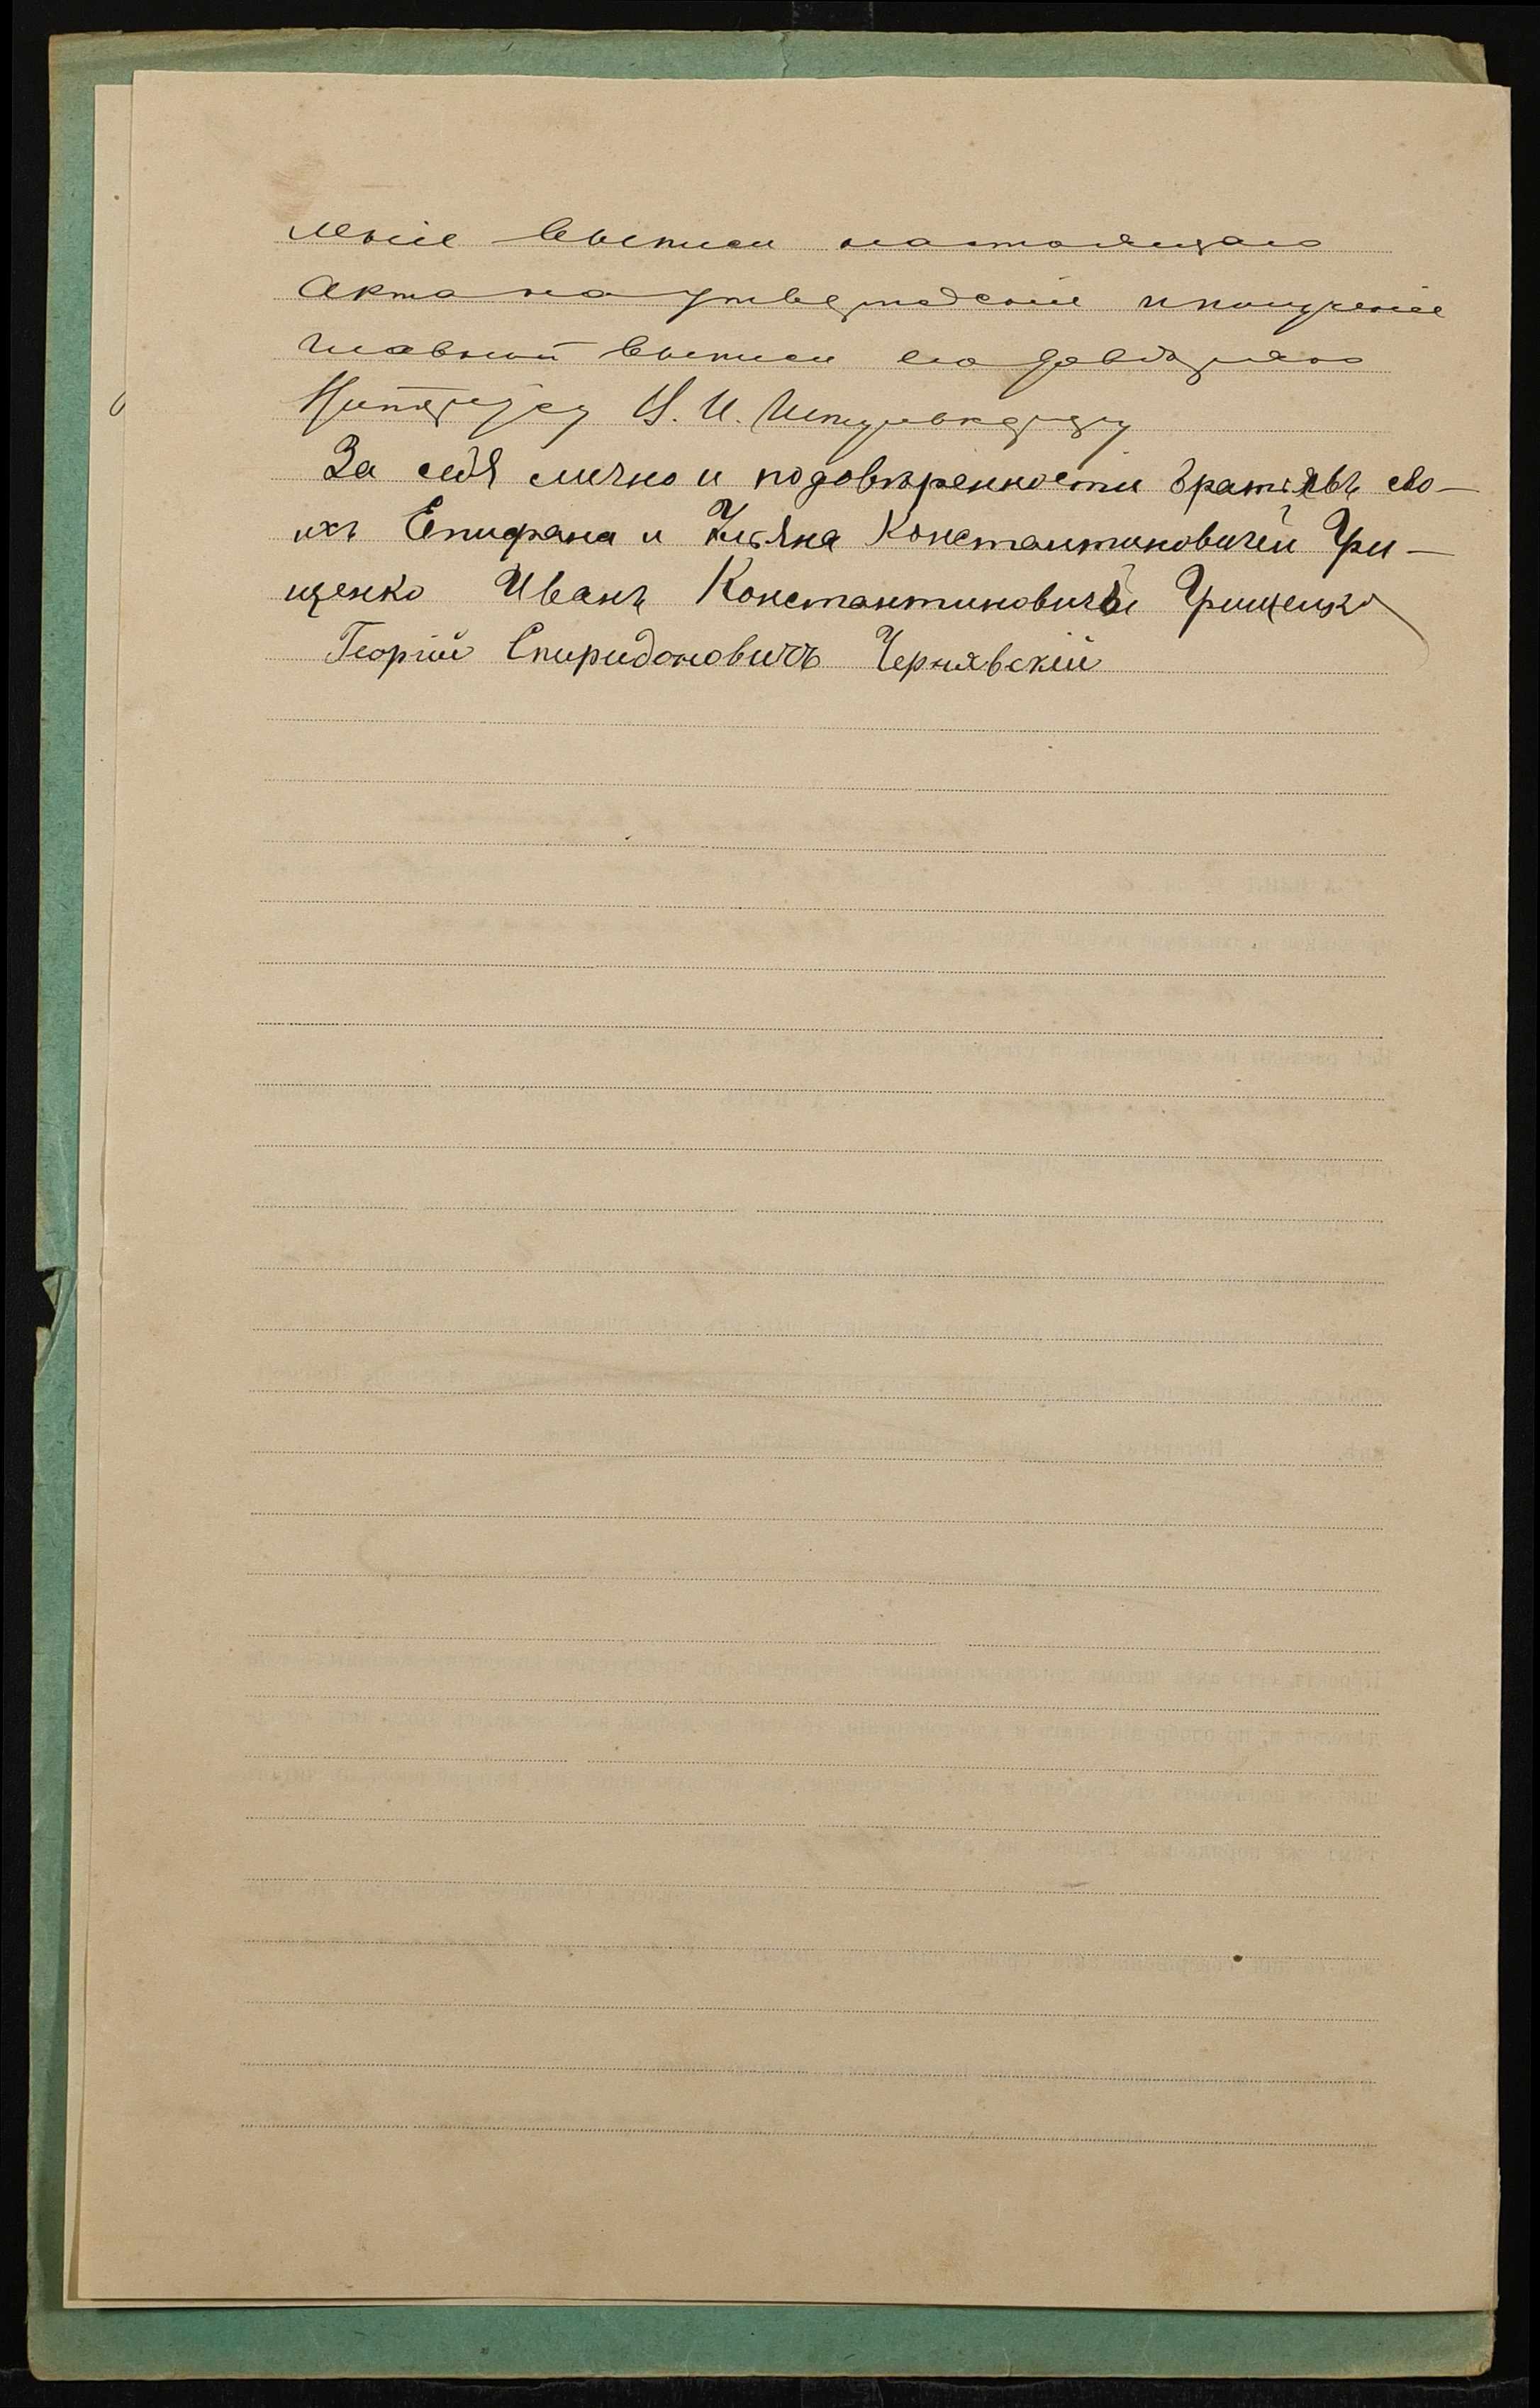 леніе выписи настоящаго
акта на утвержденіе и полученіе
главной выписи его довѣряю
Нотаріусу И. И.
За себя лично и подовѣренности братьявъ сво-
ихъ Епифана и Ульяна Константиновичей Гри-
щенко Иванъ Константиновичъ Грищенко
Георгій Спиридоновичъ Чернявскій